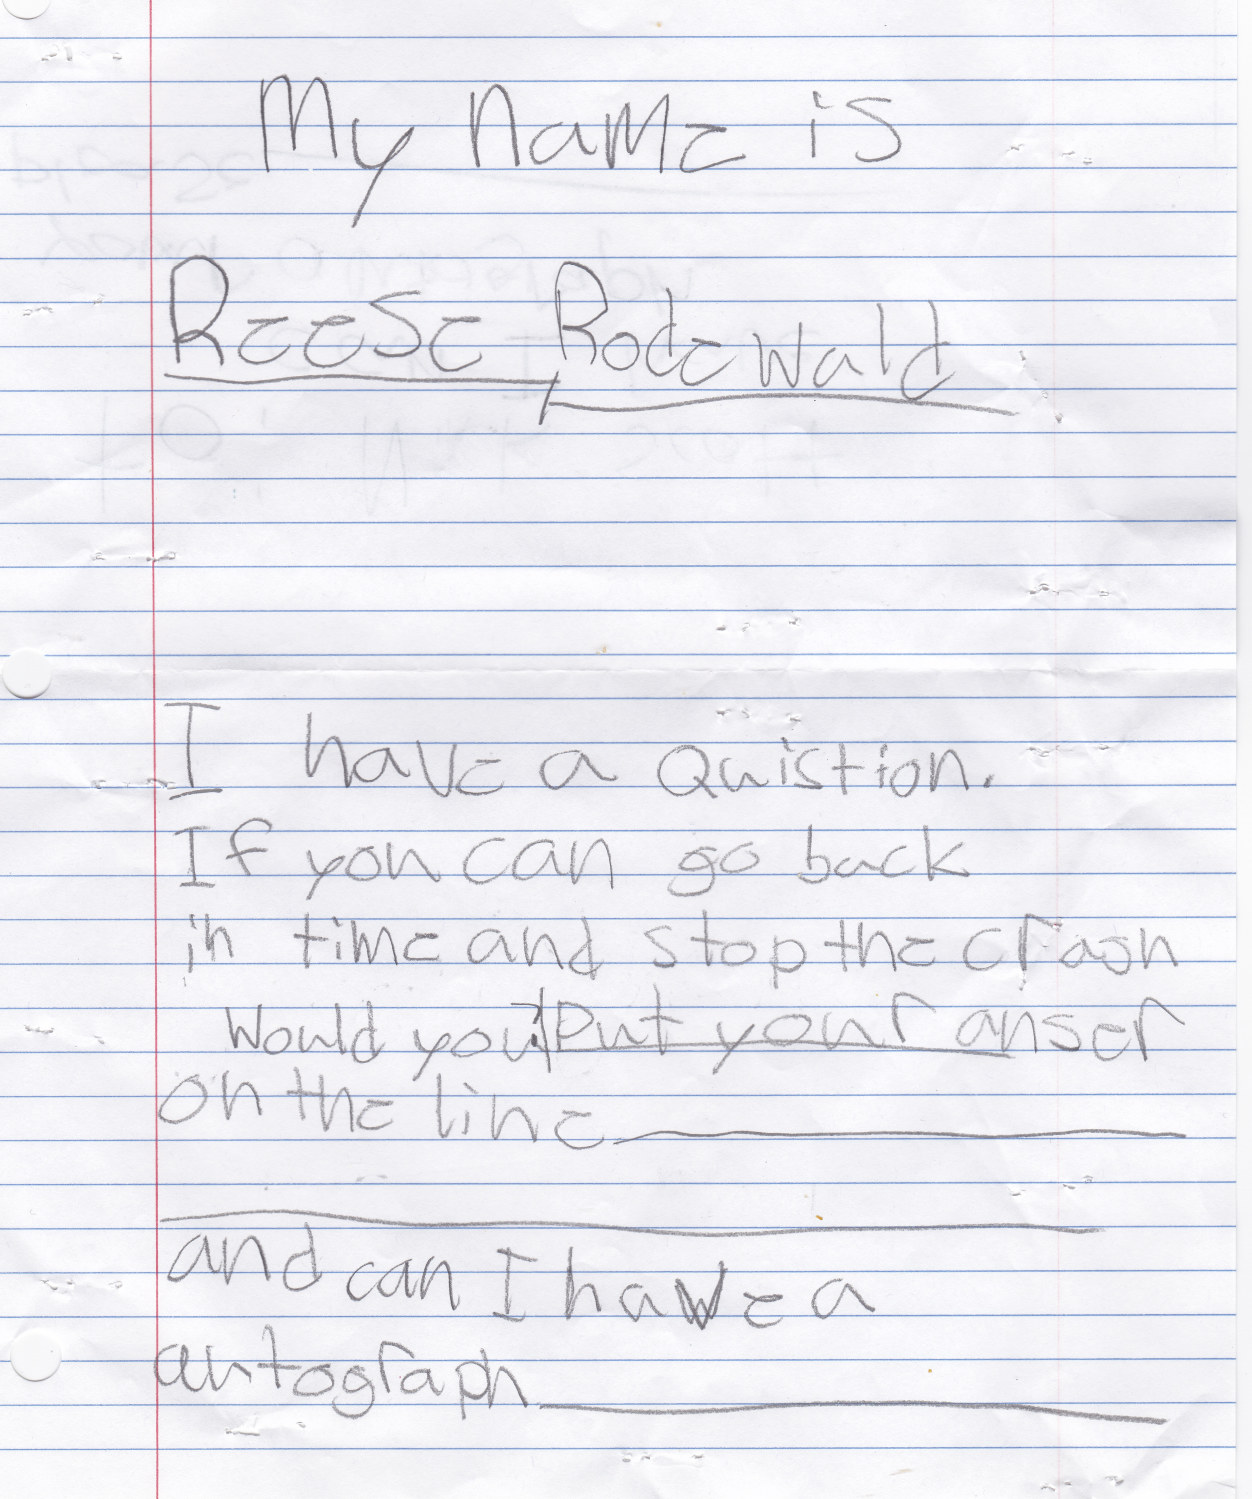 My name is
Reese Rodewald
I have a Quistion.
If you can go back
in time and stop the crash
would you? Put your anser
on the line
and can I have a
autograph